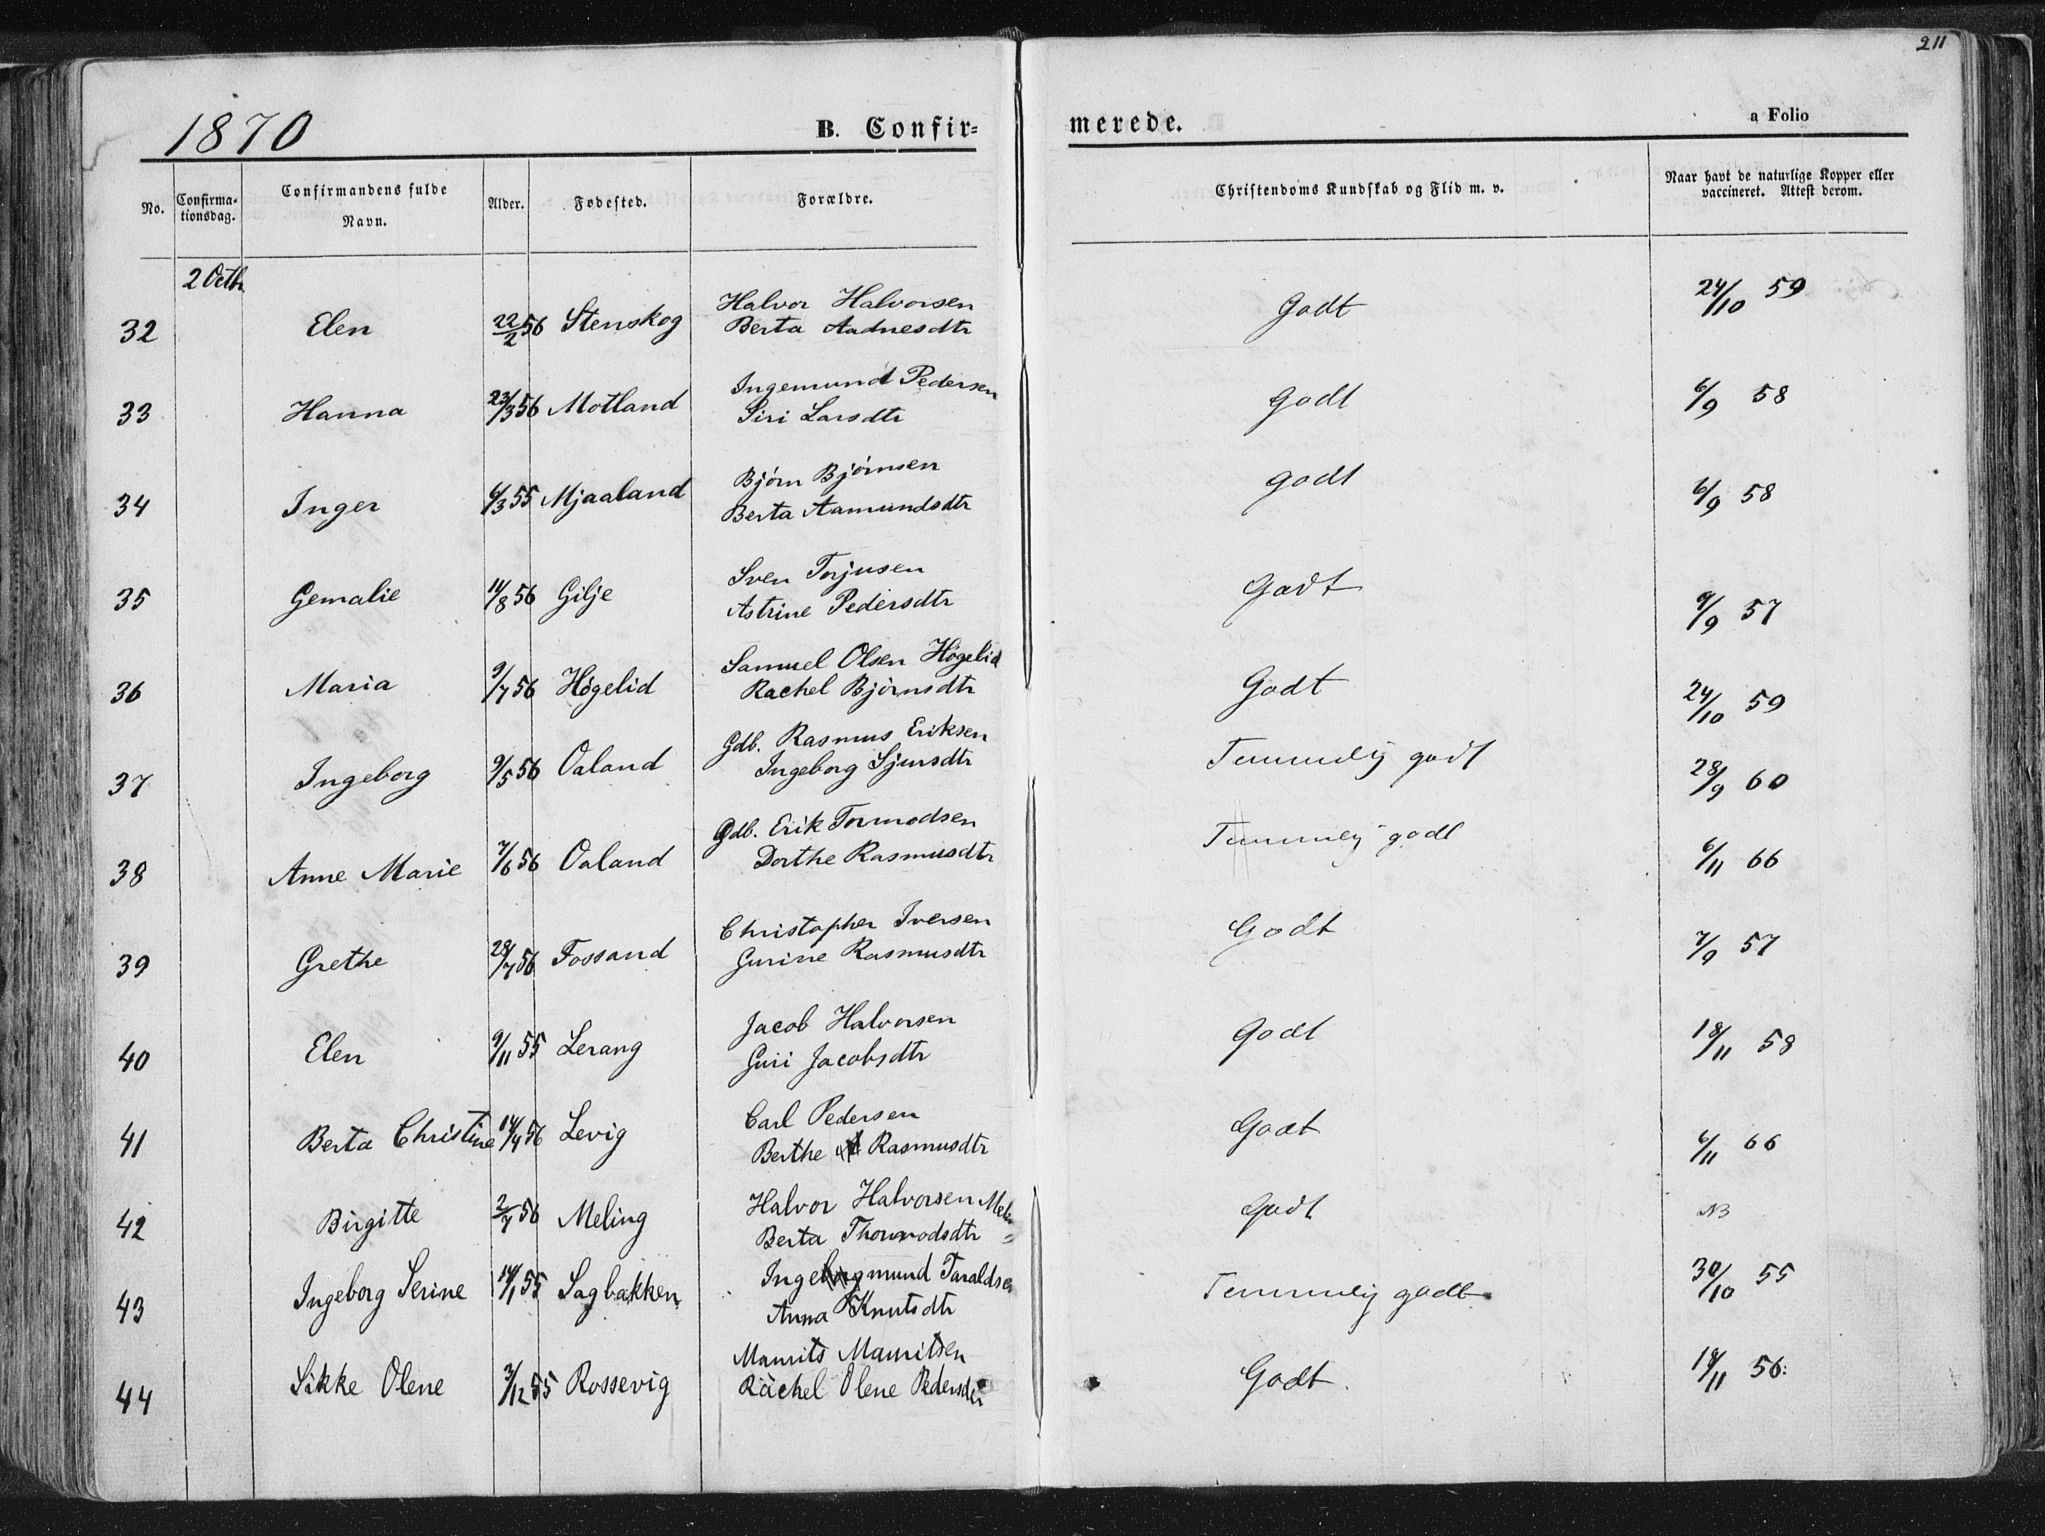 211
1870 B. Confir- merede. a Folio
No. Confirma-tionsdag. Confirmandens fulde Navn. Alder. Fødested. Forældre. Christendoms Kundskab og Flid m. v. Naar havt de naturlige Kopper eller vaccineret. Attest derom.
2 Octb.
32 Elen 22/2 56 Stenskog Halvor Halvorsen Godt 24/10 59
Berta Aadnesdtr
33 Hanna 23/3 56 Motland Ingemund Pedersen Godt 6/9 58
Siri Larsdtr
34 Inger 6/3 55 Mjaaland Bjørn Bjørnsen godt 6/9 58
Berta Aamundsdtr
35 Gemalie 11/8 56 Gilje Sven Torjusen Godt 9/9 57
Astrine Pedersdtr
36 Maria 9/7 56 Høgelid Samuel Olsen Høgelid Godt 24/10 59
Rachel Bjørnsdtr
37 Ingeborg 9/5 56 Oaland Gdb. Rasmus Eriksen Temmelig godt 28/9 60
Ingeborg Sjursdtr
38 Anne Marie 7/6 56 Oaland Gdb. Erik Tormodsen Temmelig godt 6/11 66
Dorthe Rasmusdtr
39 Grethe 28/7 56 Fossand Christopher Iversen Godt 7/9 57
Gurine Rasmusdtr
40 Elen 9/11 55 Lerang Jacob Halvorsen Godt 18/11 58
Guri Jacobsdtr
41 Berta Christine 14/4 56 Levig Carl Pedersen Godt 6/11 66
Berthe Rasmusdtr
42 Birgitte 2/7 56 Meling Halvor Halvorsen Godt NB
Berta Thormodsdtr
43 Ingeborg Serine 14/1 55 Sagbakken Ingemund Taraldsen Temmelig godt 30/10 55
Anna Knutsdtr
44 Sikke Olene 3/12 55 Rossevig Maurits Mauritsen Godt. 18/11 56:
Rachel Olene Pedersdtr